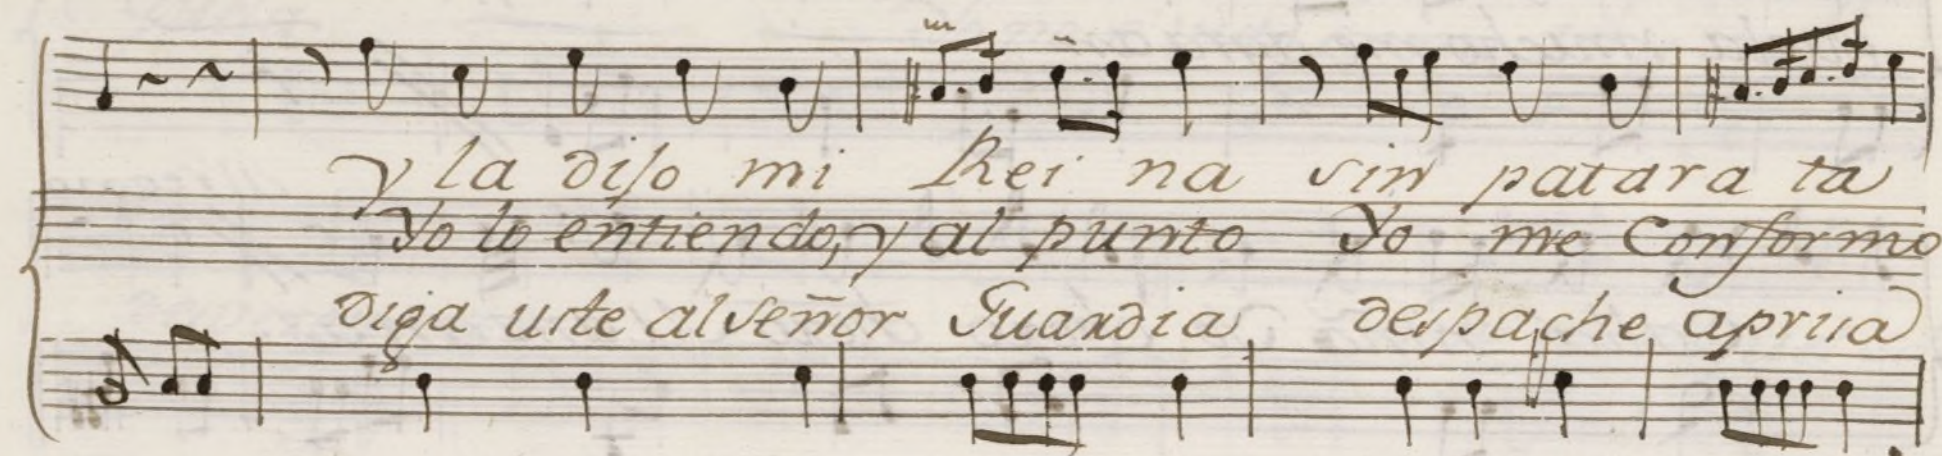 y la diso mi Rei na sin patara ta
Yo lo entiendo, y al punto Yo me Conformo
diga uste al señor Guardia despache aprisa